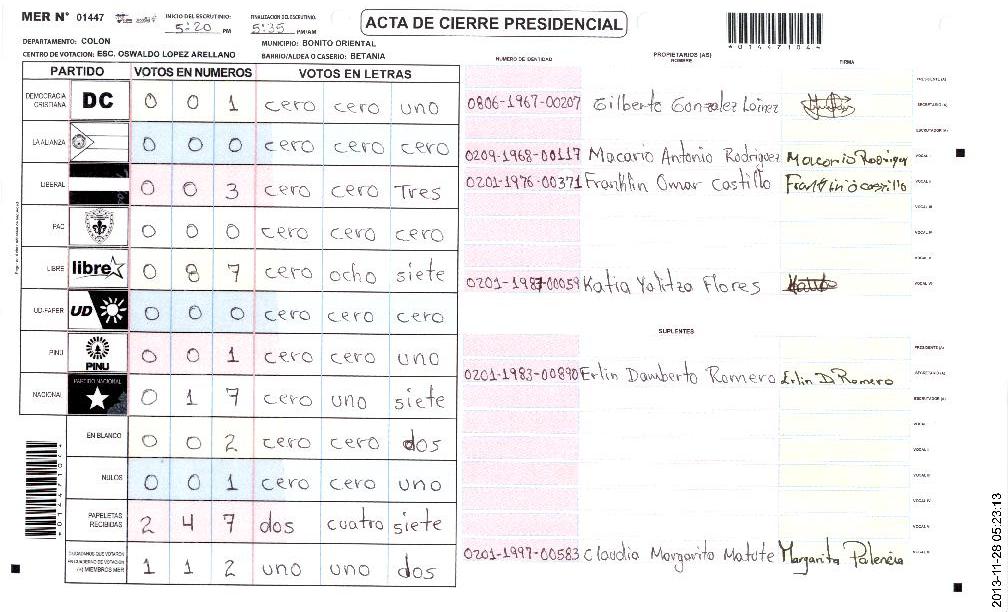 MER N° 01447
INICIO DEL ESCRUTINIO: 5:20 PM
FINALIZACION DEL ESCRUTINIO: 5:35 PM/AM
ACTA DE CIERRE PRESIDENCIAL
DEPARTAMENTO: COLON
MUNICIPIO: BONITO ORIENTAL
CENTRO DE VOTACION: ESC. OSWALDO LOPEZ ARELLANO
BARRIO/ALDEA O CASERIO: BETANIA
PARTIDO VOTOS EN NUMEROS VOTOS EN LETRAS
DEMOCRACIA CRISTIANA DC 0 0 1 cero cero uno
LA ALIANZA 0 0 0 cero cero cero
LIBERAL 0 0 3 cero cero Tres
PAC 0 0 0 cero cero cero
LIBRE libre 0 8 7 cero ocho siete
UD-FAPER UD 0 0 0 cero cero cero
PINU PINU 0 0 1 cero cero uno
NACIONAL PARTIDO NACIONAL 0 1 7 cero uno siete
EN BLANCO 0 0 2 cero cero dos
NULOS 0 0 1 cero cero uno
PAPELETAS RECIBIDAS 2 4 7 dos cuatro siete
CIUDADANOS QUE VOTARON EN CUADERNO DE VOTACION (+) MIEMBROS MER 1 1 2 uno uno dos
NUMERO DE IDENTIDAD PROPIETARIOS (AS) NOMBRE FIRMA
PRESIDENTE (A)
0806-1967-00207 Gilberto Gonzalez Lainez SECRETARIO (A)
ESCRUTADOR (A)
0209-1968-00117 Macario Antonio Rodriguez Macario Rodriguez VOCAL I
0201-1976-00371 Franklin Omar Castillo Franklin O castillo VOCAL II
VOCAL III
VOCAL IV
VOCAL V
0201-1987-00059 Katia Yalitza Flores VOCAL VI
SUPLENTES
PRESIDENTE (A)
0201-1983-00890 Erlin Damberto Romero Erlin D Romero SECRETARIO (A)
ESCRUTADOR (A)
VOCAL I
VOCAL II
VOCAL III
VOCAL IV
VOCAL V
0201-1997-00583 Claudia Margarita Matute Margarita Palencia
2013-11-28 05:23:13